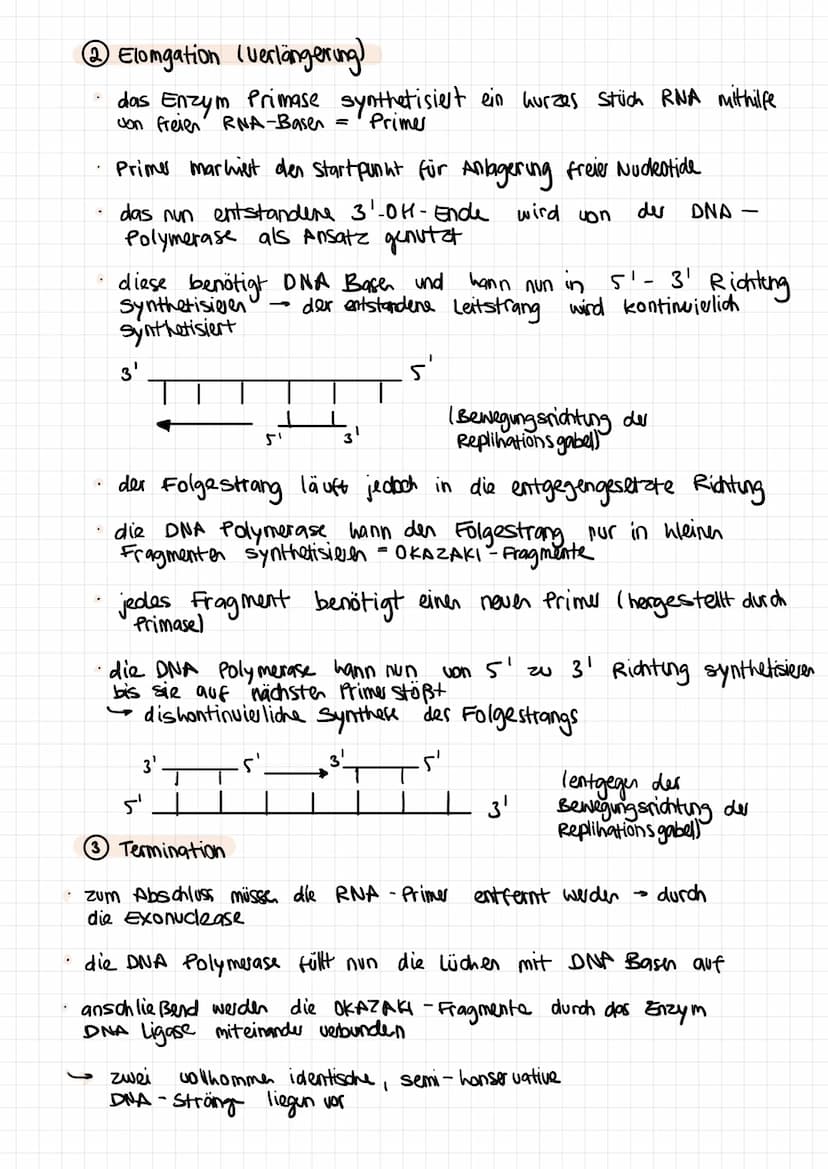 ② Elomgation (Verlängerung)
· das Enzym Primase synthetisiert ein kurzes Stück RNA mithilfe
von freien RNA-Basen = Primer
· Primer markiert den Startpunkt für Anlagerung freier Nucleotide
· das nun entstandene 3'-OH-Ende wird von der DNA-
Polymerase als Ansatz genutzt
· diese benötigt DNA Basen und kann nun in 5'- 3' Richtung
synthetisieren → der entstandene Leitstrang wird kontinuierlich
synthetisiert
3' 5'
5' 3'
(Bewegungsrichtung der
Replikationsgabel)
· der Folgestrang läuft jedoch in die entgegengesetzte Richtung
· die DNA Polymerase kann den Folgestrang nur in kleinen
Fragmenten synthetisieren = OKAZAKI-Fragmente
· jedes Fragment benötigt einen neuen Primer (hergestellt durch
Primase)
· die DNA Polymerase kann nun von 5' zu 3' Richtung synthetisieren
bis sie auf nächsten Primer stößt
↳ diskontinuierliche Synthese des Folgestrangs
3' 5' 3' 5'
5' 3'
(entgegen der
Bewegungsrichtung der
Replikationsgabel)
③ Termination
· zum Abschluss müssen die RNA-Primer entfernt werden → durch
die Exonuclease
· die DNA Polymerase füllt nun die Lücken mit DNA Basen auf
· anschließend werden die OKAZAKI-Fragmente durch das Enzym
DNA Ligase miteinander verbunden
↳ zwei vollkommen identische, semi-konservative
DNA-Stränge liegen vor